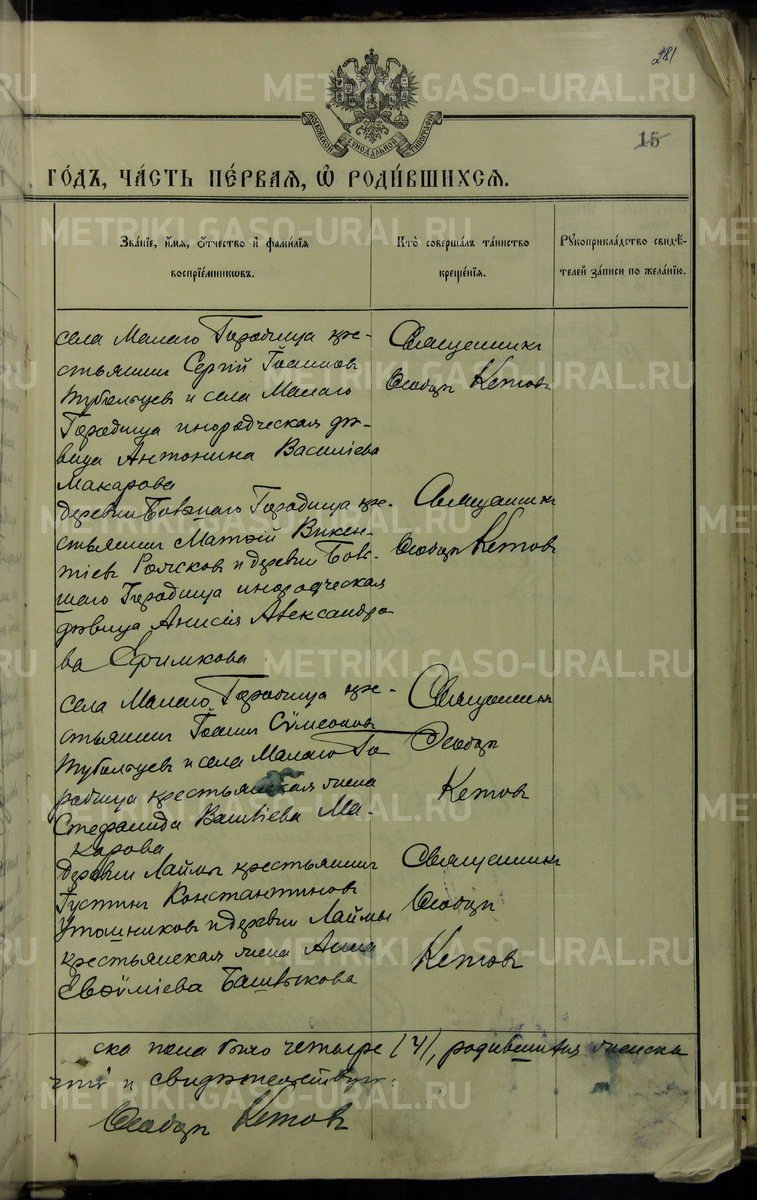 281
15
МОСКОВСКОЙ СѴНОДАЛЬНОЙ ТИПОГРАФІИ
ГОДЪ, ЧАСТЬ ПЕРВАЯ, Ѡ РОДИВШИХСЯ.
Званіе, имя, отчество и фамилія воспріемниковъ.
Кто совершалъ таинство крещенія.
Рукоприкладство свидѣтелей записи по желанію.
села Малаго Городища кре-
стьянинъ Сергій Іоанновъ
Тубольцевъ и села Малаго
Городища инородческая дѣ-
вица Антонина Василіева
Макарова
Священникъ
Кетовъ
деревни Большаго Городища кре-
стьянинъ Матѳій Викен-
тіевъ и деревни Боль-
шаго Городища инородческая
дѣвица Анисія Александро
ва Ефимкова
Священникъ
Кетовъ
села Малаго Городища кре-
стьянинъ Іоаннъ Сѵмеоновъ
Тубольцевъ и села Малаго Го
родища крестьянская жена
Стефанида Василіева Ма-
карова
Священникъ
Кетовъ
деревни Лаймы крестьянинъ
Іустинъ Константиновъ
и деревни Лаймы
крестьянская жена Анна
Евѳѵміева Башлыкова
Священникъ
Кетовъ
ска пола было четыре (4), женска
и
Кетовъ
METRIKI.GASO-URAL.RU